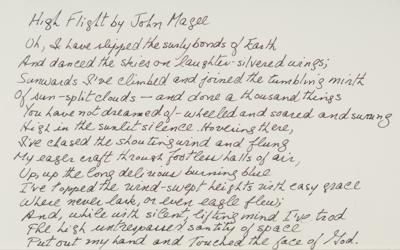 High Flight by John Magee
Oh, I have slipped the surly bonds of Earth
And danced the skies on laughter-silvered wings;
Sunwards I've climbed and joined the tumbling mirth
Of sun-split clouds — and done a thousand things
You have not dreamed of - wheeled and soared and swung
High in the sunlit silence. Hovering there,
I've chased the shouting wind and flung
My eager craft through footless halls of air,
Up, up the long delirious burning blue
I've topped the wind-swept heights with easy grace
Where never lark, or even eagle flew;
And, while with silent, lifting mind I've trod
The high untrespassed sanctity of space
Put out my hand and Touched the face of God.